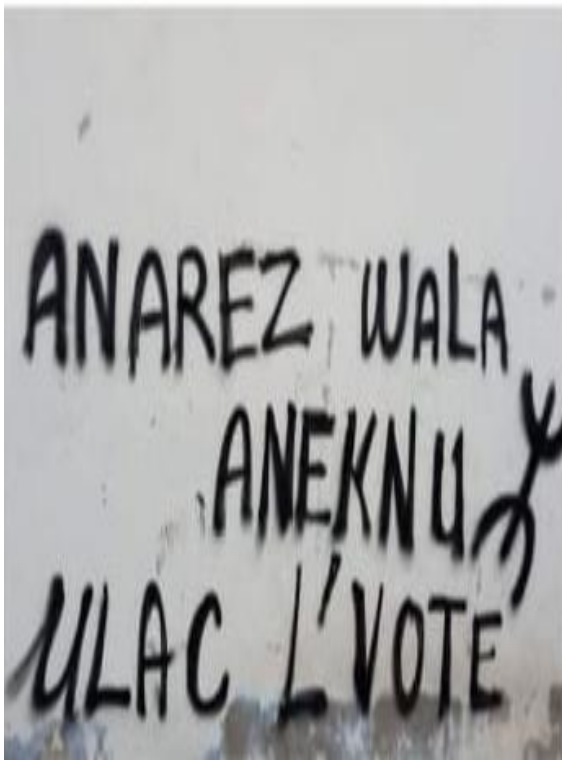 ANAREZ WALA
ANEKNU
ULAC L'VOTE